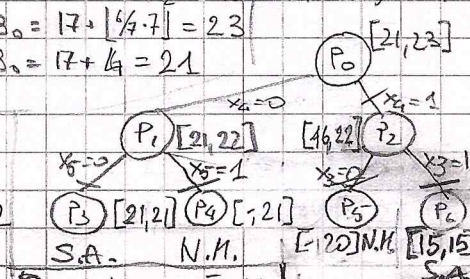 3₀ = 17 + ⌊6/7·7⌋ = 23
3₀ = 17 + 4 = 21
P₀ [21,23]
x₄=0 x₄=1
P₁ [21,22] [16,22] P₂
x₅=0 x₅=1 x₃=0 x₃=1
P₃ [21,21] P₄ [-,21] P₅ P₆
[-,20] N.M. [15,15]
S.A. N.M.